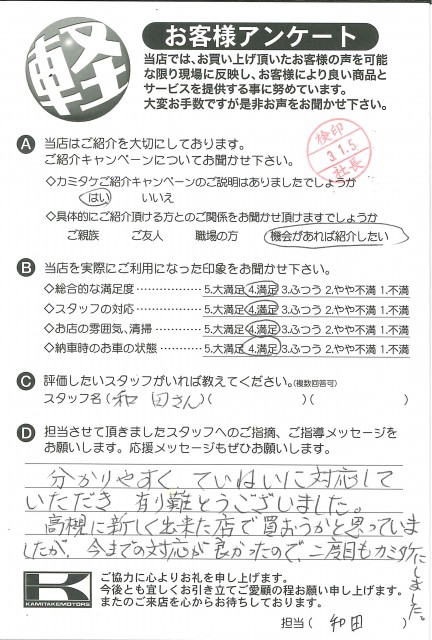 軽
お客様アンケート
当店では、お買い上げ頂いたお客様の声を可能
な限り現場に反映し、お客様により良い商品と
サービスを提供する事に努めています。
大変お手数ですが是非お声をお聞かせ下さい。
検印
31.5
社長
A 当店はご紹介を大切にしております。
ご紹介キャンペーンについてお聞かせ下さい。
◇カミタケご紹介キャンペーンのご説明はありましたでしょうか
はい いいえ
◇具体的にご紹介頂ける方とのご関係をお聞かせ頂けますでしょうか
ご親族 ご友人 職場の方 機会があれば紹介したい
B 当店を実際にご利用になった印象をお聞かせ下さい。
◇総合的な満足度 …………… 5.大満足 4.満足 3.ふつう 2.やや不満 1.不満
◇スタッフの対応 …………… 5.大満足 4.満足 3.ふつう 2.やや不満 1.不満
◇お店の雰囲気、清掃 ……… 5.大満足 4.満足 3.ふつう 2.やや不満 1.不満
◇納車時のお車の状態 ……… 5.大満足 4.満足 3.ふつう 2.やや不満 1.不満
C 評価したいスタッフがいれば教えてください。(複数回答可)
スタッフ名 (和田さん)( )( )
D 担当させて頂きましたスタッフへのご指摘、ご指導メッセージを
お願いします。応援メッセージもぜひお願いします。
分かりやすく ていねいに対応して
いただき 有り難とうございました。
高槻に新しく出来た店で買おうかと思っていま
したが、今までの対応が良かったので、二度目もカミタケ
にしました。
K
KAMITAKEMOTORS
ご協力に心よりお礼を申し上げます。
今後とも宜しくお引き立てご愛顧の程お願い申し上げます。
またのご来店を心からお待ちしております。
担当 ( 和田 )